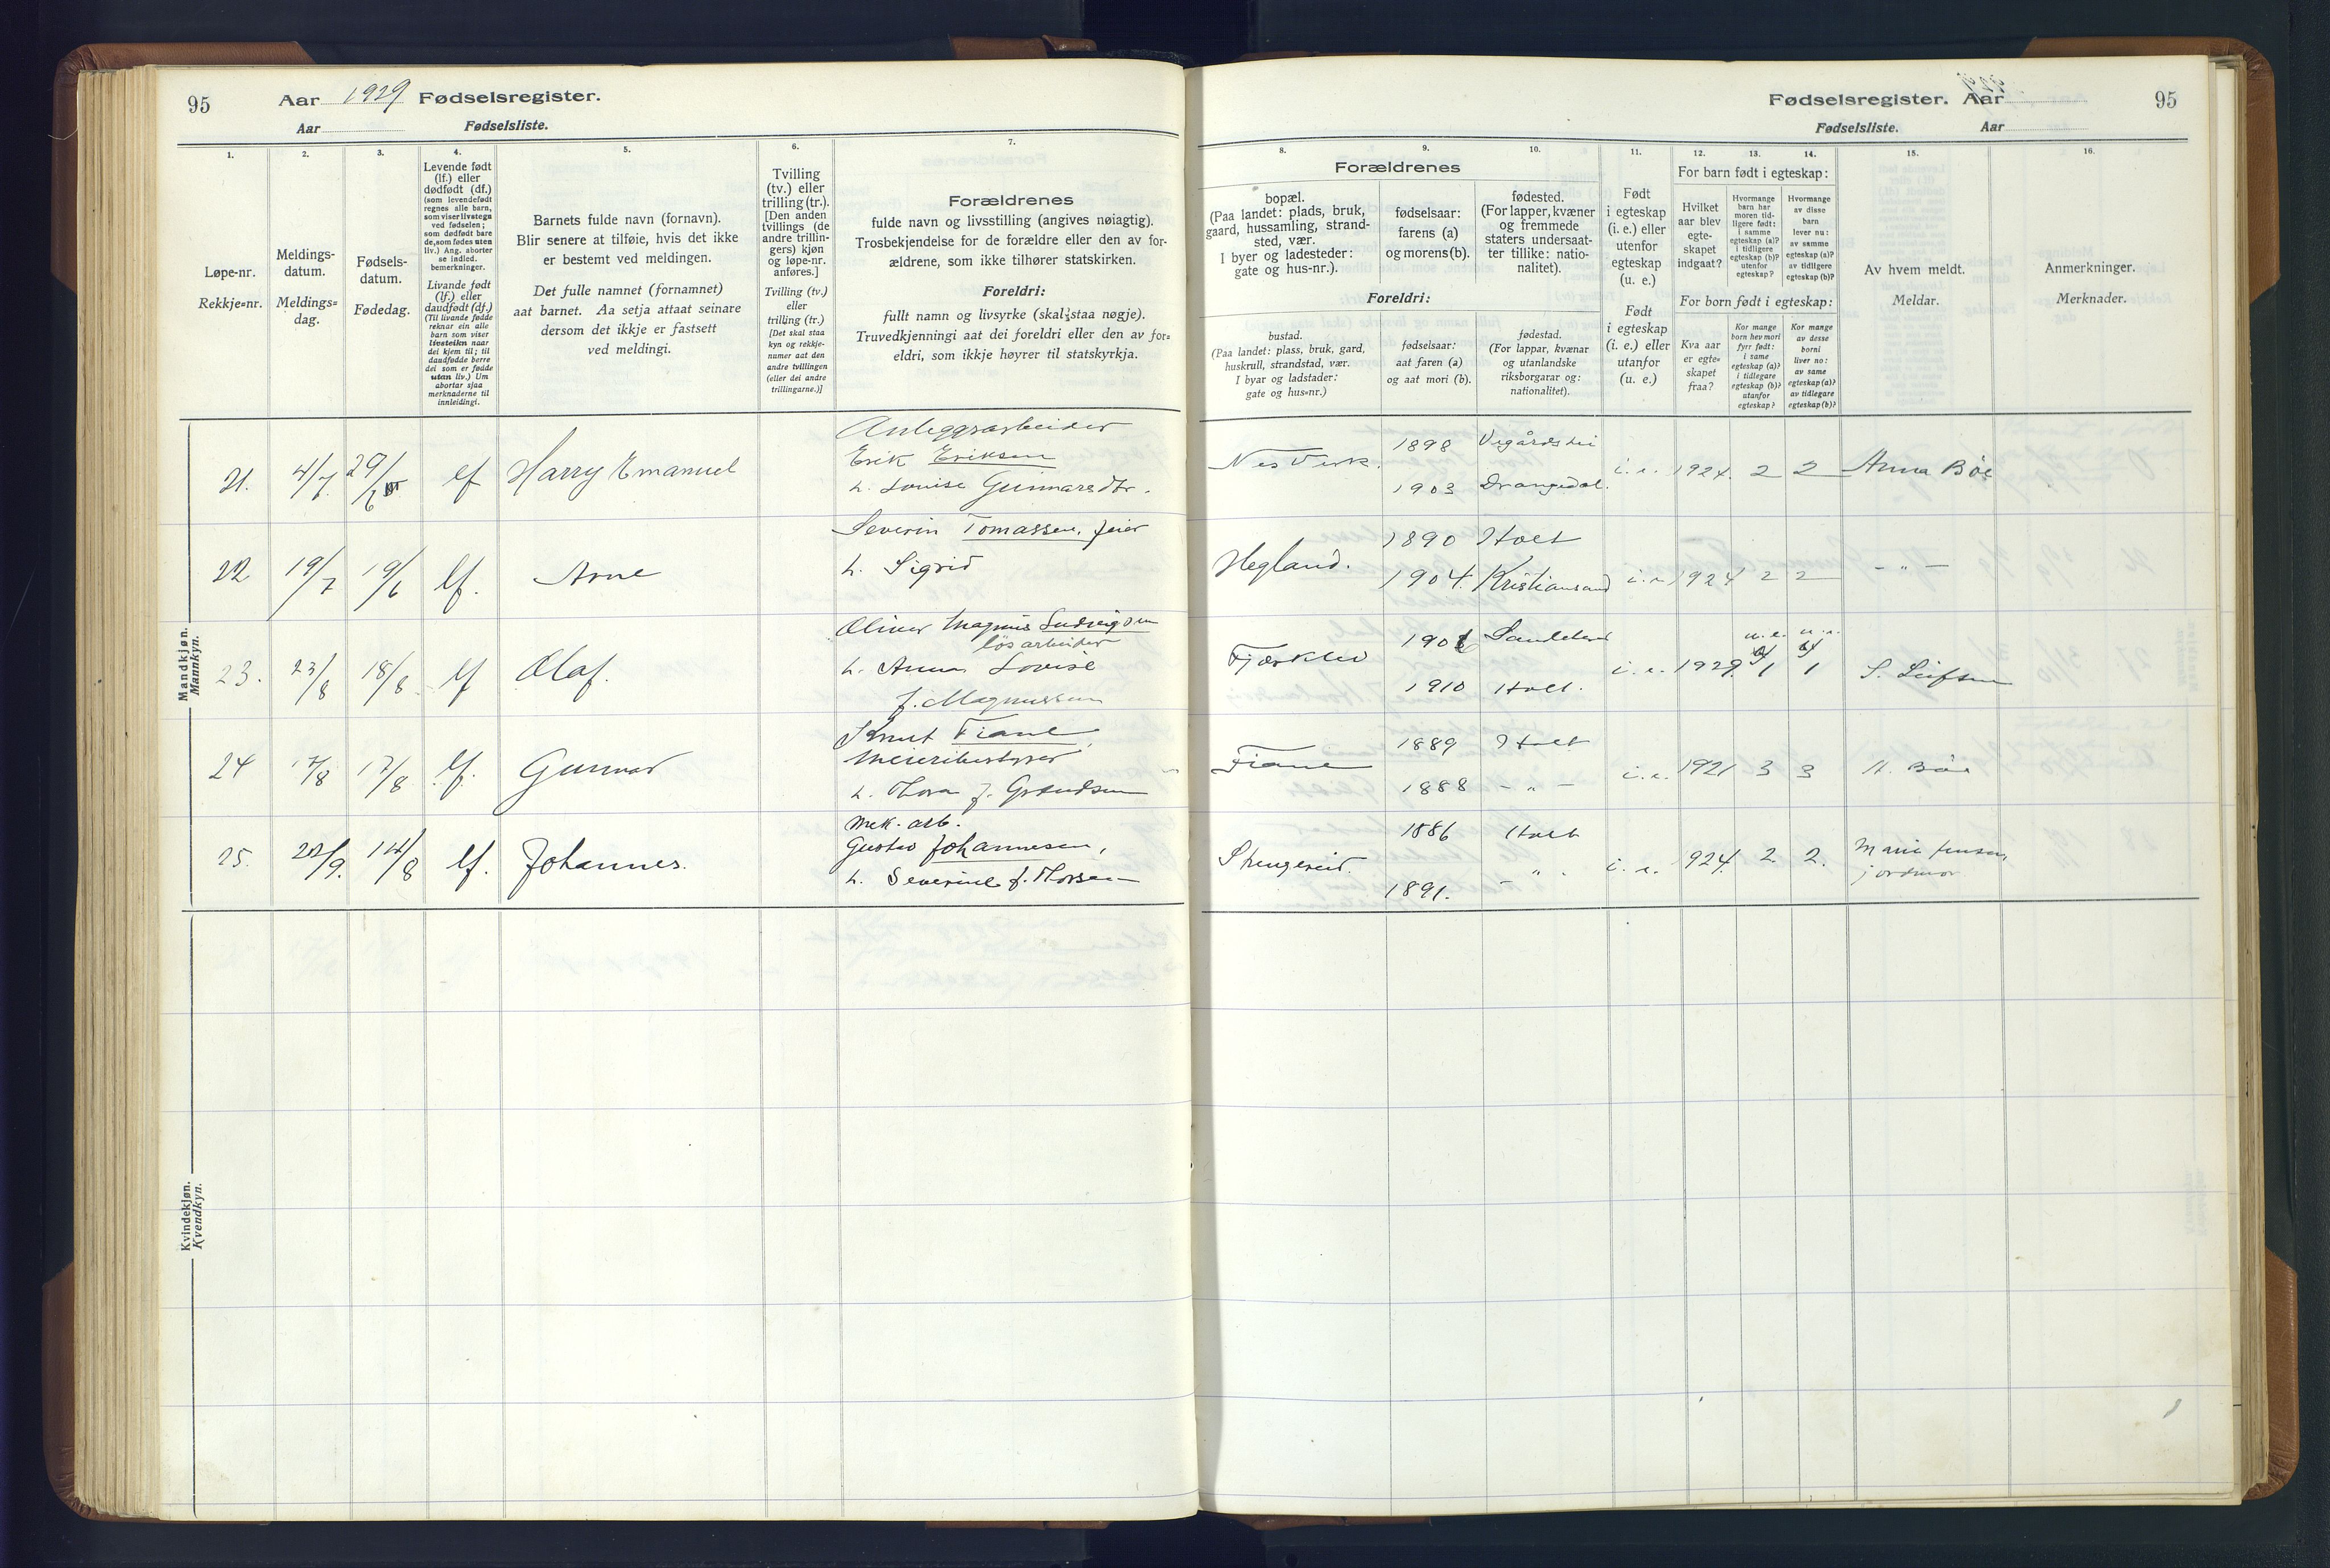 95 Aar 1929 Fødselsregister.
Aar Fødselsliste.
1. 2. 3. 4. 5. 6. 7.
Løpe-nr.
Rekkje=nr.
Meldings-
datum.
Meldings=
dag.
Fødsels-
datum.
Fødedag.
Levende født
(lf.) eller
dødfødt (df.)
(som levendefødt
regnes alle barn,
som viser livstegn
ved fødselen;
som dødfødt bare
de, som fødes uten
liv.) Ang. aborter
se indled.
bemerkninger.
Livande født
(lf.) eller
daudfødt (df.)
(Til livande fødde
reknar ein alle
barn som viser
livsteikn naar
dei kjem til; til
daudfødde berre
dei som er fødde
utan liv.) Um
abortar sjaa
merknaderne til
innleidingi.
Barnets fulde navn (fornavn).
Blir senere at tilføie, hvis det ikke
er bestemt ved meldingen.
Det fulle namnet (fornamnet)
aat barnet. Aa setja attaat seinare
dersom det ikkje er fastsett
ved meldingi.
Tvilling
(tv.) eller
trilling (tr.).
[Den anden
tvillings (de
andre trillin-
gers) kjøn
og løpe-nr.
anføres.]
Tvilling (tv.)
eller
trilling (tr.)
[Det skal staa
kyn og rekkje-
numer aat den
andre tvillingen
(eller dei andre
trillingarne.)]
Forældrenes
fulde navn og livsstilling (angives nøiagtig).
Trosbekjendelse for de forældre eller den av for-
ældrene, som ikke tilhører statskirken.
Foreldri:
fullt namn og livsyrke (skal staa nøgje).
Truvedkjenningi aat dei foreldri eller den av for=
eldri, som ikkje høyrer til statskyrkja.
Mandkjøn.
Mannkyn.
Anleggsarbeider
21. 4/7 29/6 lf Harry Emanuel Erik Eriksen
h. Lovise Gunnarsdtr.
Severin Tomassen, feier
22 19/7 19/6 lf. Arne h. Sigrid
Oliver Magnus Ludvigsen
løsarbeider
23. 23/8 18/8 lf Olaf. h. Anna Lovise
f. Magnussen
Knut Fiane,
24 17/8 17/8 lf. Gunnar Meieribestyrer
h. Thora f. Grændsen
Mek. arb.
25. 22/9. 14/8 lf. Johannes. Gustav Johannesen,
h. Severine f. Thorsen
Kvindekjøn.
Kvendkyn.
Fødselsregister. Aar 95
Fødselsliste. Aar
8. 9. 10. 11. 12. 13. 14. 15. 16.
Forældrenes
bopæl.
(Paa landet: plads, bruk,
gaard, hussamling, strand-
sted, vær.
I byer og ladesteder:
gate og hus-nr.).
fødselsaar:
farens (a)
og morens (b).
fødested.
(For lapper, kvæner
og fremmede
staters undersaat-
ter tillike: natio-
nalitet).
Foreldri:
bustad.
(Paa landet: plass, bruk, gard,
huskrull, strandstad, vær.
I byar og ladstader:
gate og hus=nr.)
fødselsaar:
aat faren (a)
og aat mori (b).
fødestad.
(For lappar, kvænar
og utanlandske
riksborgarar og:
nationalitet).
Født
i egteskap
(i. e.) eller
utenfor
egteskap
(u. e.)
Født
i egteskap
(i. e.) eller
utanfor
(u. e.)
For barn født i egteskap:
Hvilket
aar blev
egte-
skapet
indgaat?
Hvormange
barn har
moren tid-
ligere født:
i samme
egteskap (a)?
i tidligere
egteskap (b)?
utenfor
egteskap?
Hvormange
av disse
barn
lever nu:
av samme
egteskap (a)?
av tidligere
egteskap (b)?
For born født i egteskap:
Kva aar
er egte=
skapet
fraa?
Kor mange
born hev mori
fyrr født:
i same
egteskap (a)?
i tidlegare
egteskap (b)?
utanfor
egteskap?
Kor mange
av desse
borni
liver no:
av same
egteskap (a)?
av tidlegare
egteskap (b)?
Av hvem meldt.
Meldar.
Anmerkninger.
Merknader.
1898 Vegårdshei
Nes Verk. i. e. 1924. 2 2 Anna Bøe
1903 Drangedal.
1890 Holt
Hegland. 1904. Kristiansand i. e. 1924 2 2 - " -
u. e. u. e.
Fjærkleiv i. e. 1929. 1 1 S. Leifsen
1910 Holt.
1889 Holt
Fiane i. e. 1921 3 3 Bøe
1888 - " -
1886 Holt
Strengereid. i. e. 1924. 2. 2. Marie Jensen
jordmor
1891. - " -